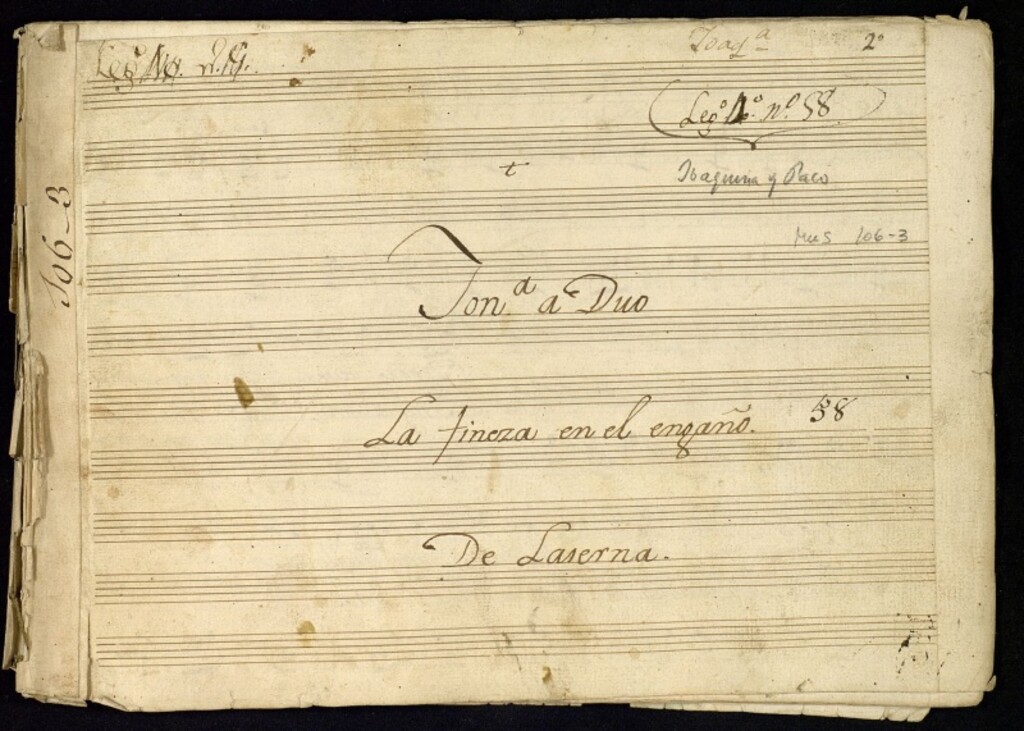 Joaq.ª 2º
Legº 4º nº 58
t
Joaquina y Paco
Mus 106-3
106-3
Ton.ª a Duo
La fineza en el engaño. 58
De Laserna.